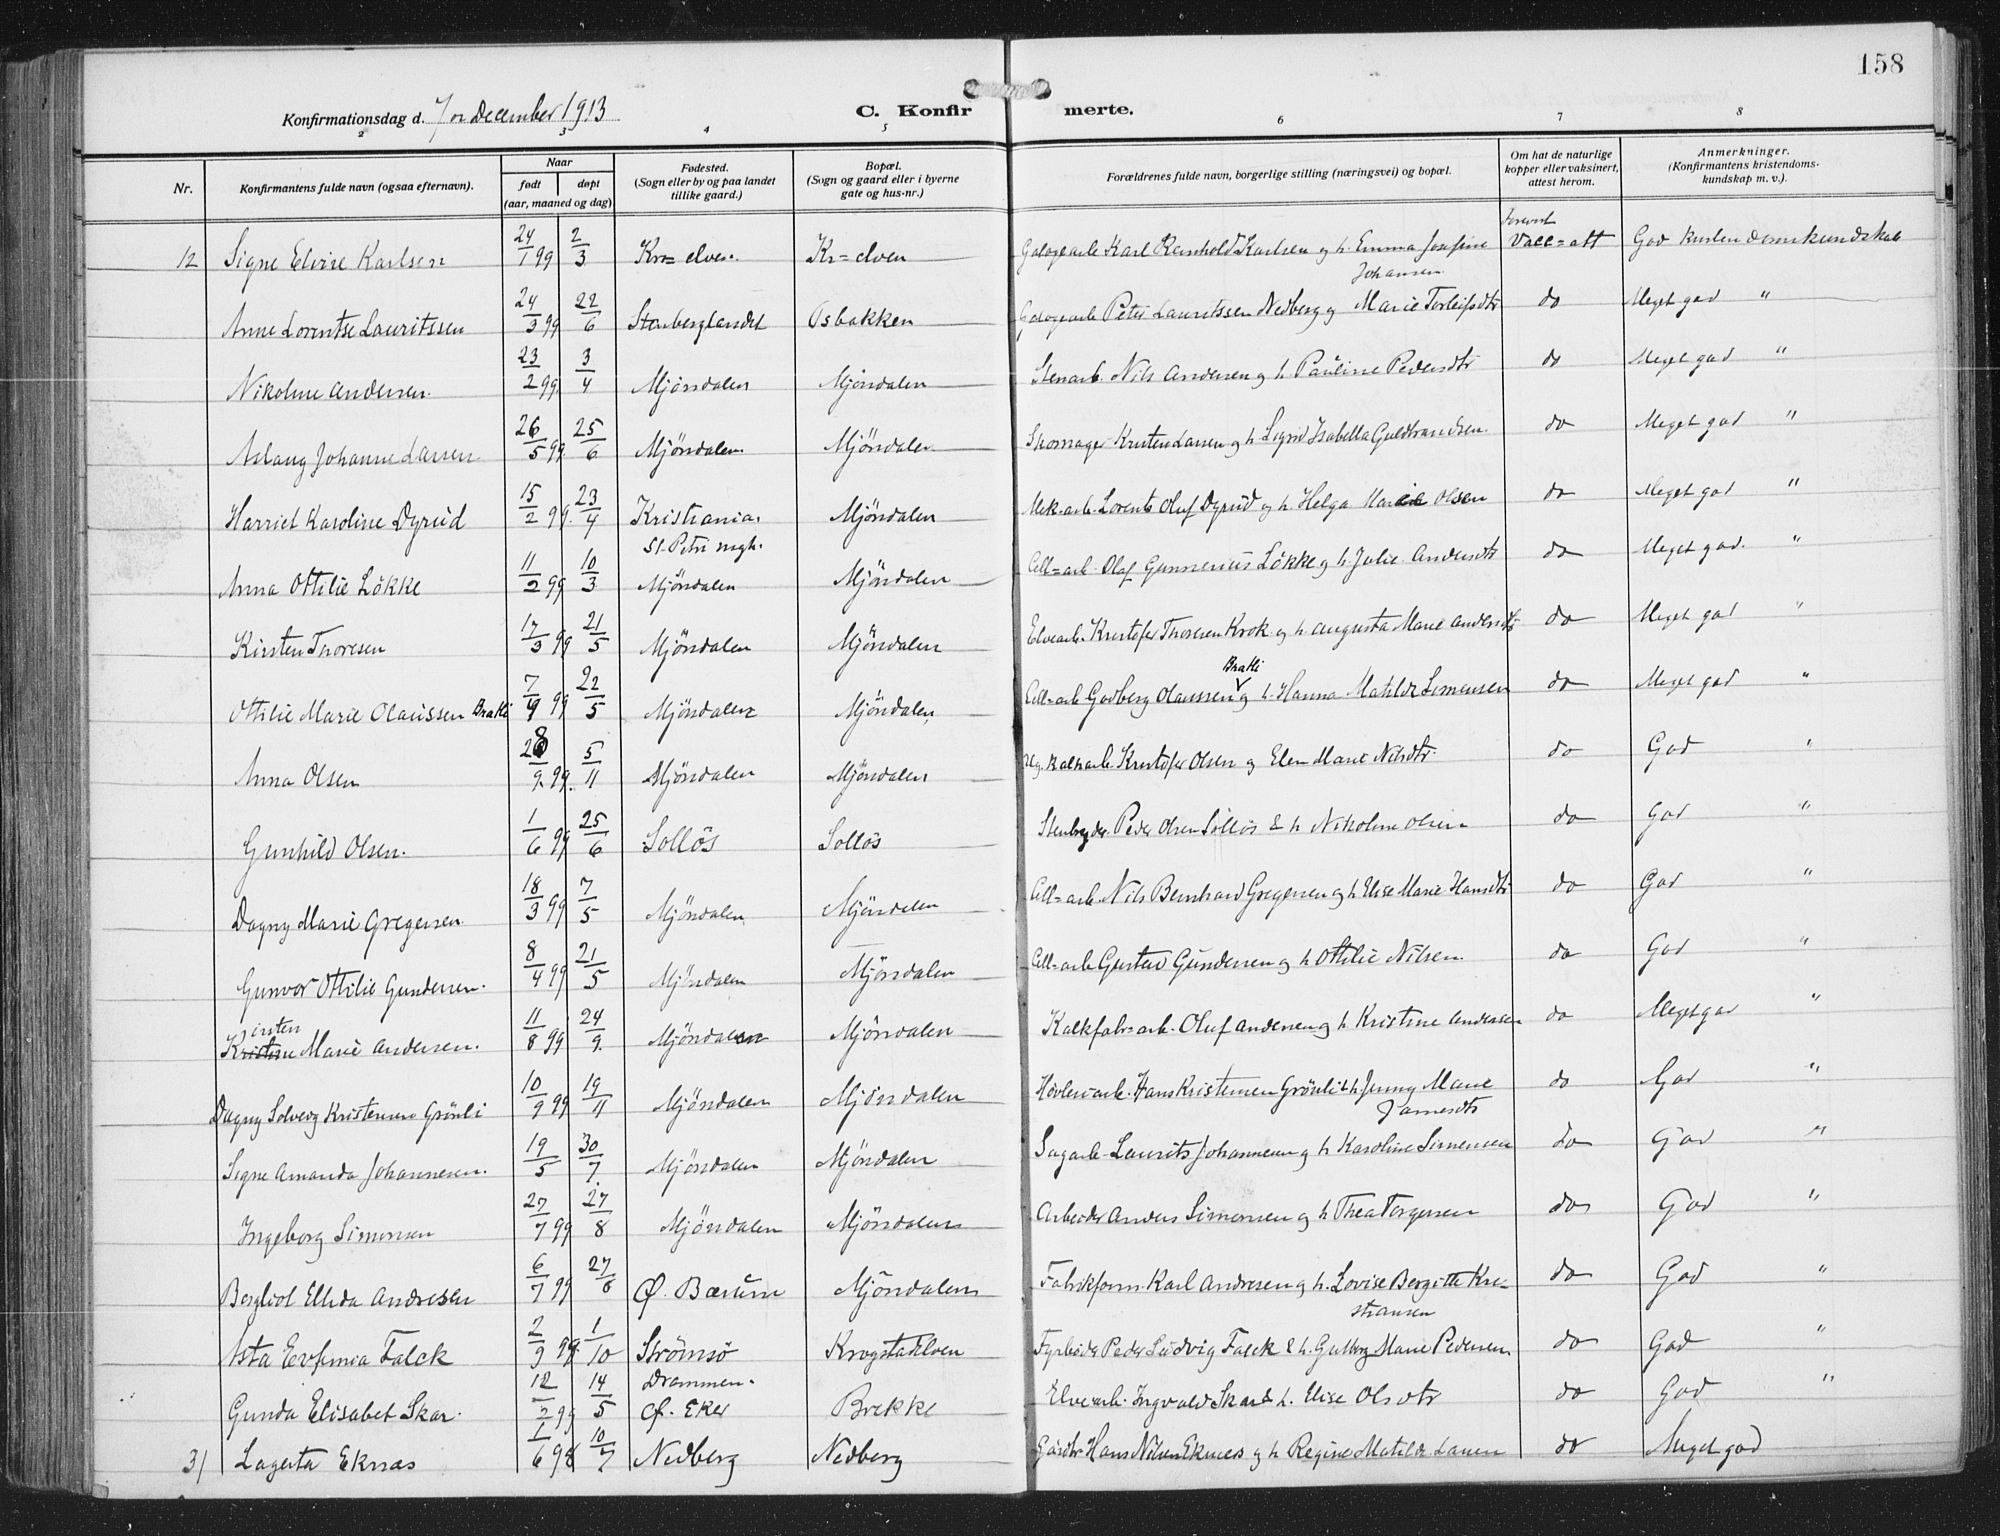 158
Konfirmationsdag d. 7 December 1913 C. Konfirmerte.
2 3 4 5 6 7 8
Nr. Konfirmantens fulde navn (ogsaa efternavn). Naar født døpt (aar, maaned og dag) Fødested. (Sogn eller by og paa landet tillike gaard.) Bopæl. (Sogn og gaard eller i byerne gate og hus-nr.) Forældrenes fulde navn, borgerlige stilling (næringsvei) og bopæl. Om hat de naturlige kopper eller vaksinert, attest herom. Anmerkninger. (Konfirmantens kristendomskundskap m. v.).
12 Signe Elvire Karlsen 24/1 99 2/3 Kr=elven Kr=elven Galogearb Karl Reinhold Karlsen og h. Emma Josefine Vacc=att God kristendomskundskab
Johansen
Anne Lorentse Lauritssen 24/3 99 22/6 Stenberglandet Osbakken Galogearb Peter Lauritssen Nedberg og Marie Torleifsdtr do Meget god "
Nikoline Andersen 23/2 99 3/4 Mjöndalen Mjöndalen Stenarb. Nils Andersen og h. Pauline Pedersdtr do Meget god "
Aslaug Johanne Larsen 26/5 99 25/6 Mjöndalen Mjöndalen Skomager Kristen Larsen og h. Sigrid Isabella Guldbrandsen do Meget god "
Harriet Karoline Dyrud 15/2 99 23/4 Kristiania Mjöndalen Mek.arb. Lorents Oluf Dyrud og h. Helga Marie Olsen do Meget god "
St. Petri mgh.
Anna Ottilie Lökke 11/2 99 10/3 Mjöndalen Mjöndalen Cell=arb. Olaf Gunnerius Lökke og h. Julie Andersdtr do Meget god "
Kirsten Thoresen 17/3 99 21/5 Mjöndalen Mjöndalen Elvearb. Kristofer Thoresen Krok og h. Augusta Marie Andersdtr do Meget god "
Ottilie Marie Olaussen Bratli 7/4 99 22/5 Mjöndalen Mjöndalen Cell=arb Godberg Olaussen Bratli og h. Hanna Matilde Simensen do Meget god "
Anna Olsen 28/9 99 5/11 Mjöndalen Mjöndalen kalkarb Kristofer Olsen og Elen Marie Nilsdtr do God "
Gunhild Olsen 1/6 99 25/6 Sollös Sollös Stenbryder Peder Olsen Sollös & h Nikoline Olsen do God "
Dagny Marie Gregersen 18/3 99 7/5 Mjöndalen Mjöndalen Cell=arb. Nils Bernhard Gregersen og h Elise Marie Hansdtr do God "
Gunvor Ottilie Gundersen 8/4 99 21/5 Mjöndalen Mjöndalen Cell=arb Gustav Gundersen og h Ottilie Nilsen do God "
Kirsten Marie Andersen 11/8 99 24/9 Mjöndalen Mjöndalen Kalkfabr=arb. Oluf Andersen og h Kristine Andersen do Meget god "
Dagny Solveig Kristensen Grönli 10/9 99 19/11 Mjöndalen Mjöndalen Hövleriarb. Hans Kristensen Grönli & h. Jenny Marie do God "
Jamesdtr
Signe Amanda Johannesen 19/5 30/7 Mjöndalen Mjöndalen Sagarb Laurits Johannesen og h Karoline Simensen do God "
Ingeborg Simonsen 27/7 99 27/8 Mjöndalen Mjöndalen Arbeider Anders Simonsen og h Thea Torgersen do God "
Bergliot Ellida Andresen 6/7 99 27/8 Ø. Bærum Mjöndalen Fabrikform. Karl Andresen og h. Lovise Bergitte Kristiansen do God "
Asta Evfemia Falck 2/9 99 1/10 Strömsö Krogstadelven Fyrböder Peder Ludvig Falck & h. Gulborg Marie Pedersen do God "
Drammen
Gunda Elisabet Skar 12/2 99 14/5 Ø. Eker Brekke Elvearb. Ingvald Skar & h. Elise Olsdtr do God "
31 Lagerta Eknæs 1/6 98 10/7 Nedberg Nedberg Gårdbr Hans Nilsen Eknæs og h Regine Matilde Larsen do Meget god